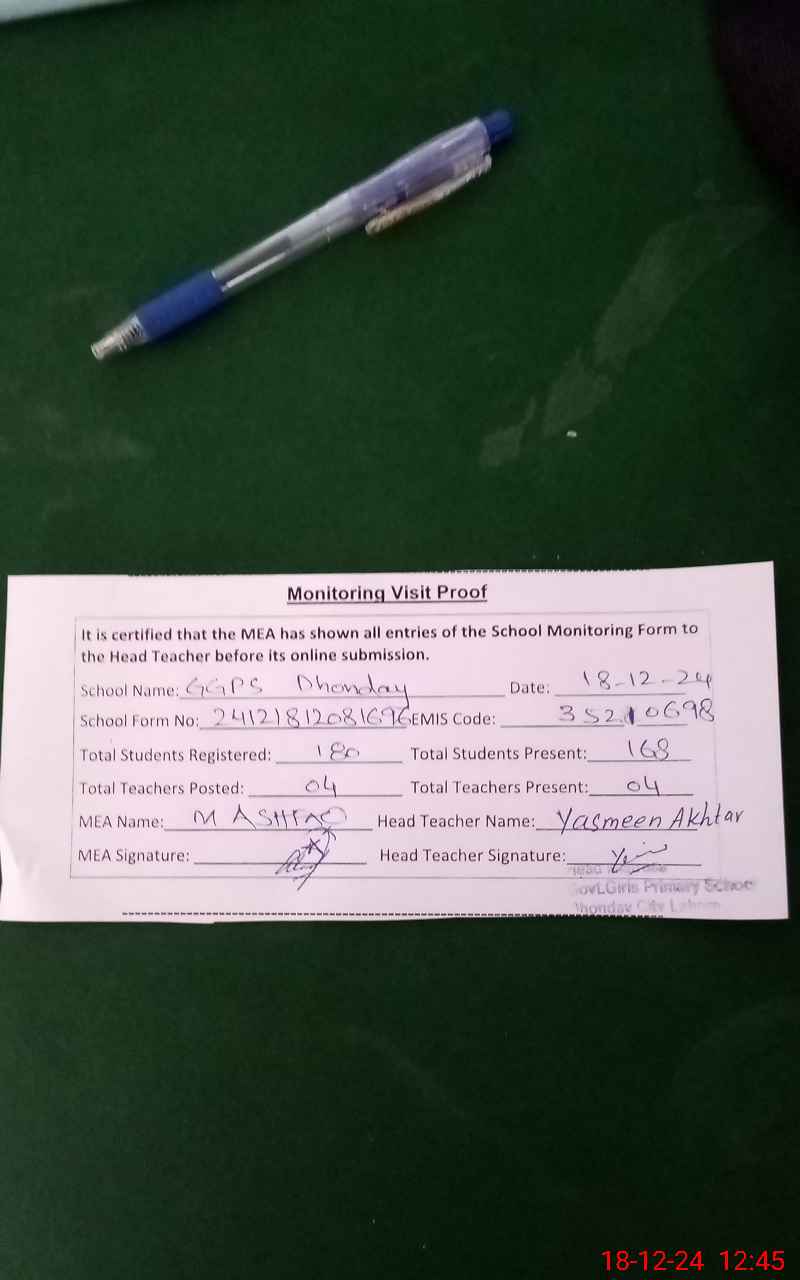 Monitoring Visit Proof
It is certified that the MEA has shown all entries of the School Monitoring Form to
the Head Teacher before its online submission.
School Name: GGPS Dhonday Date: 18-12-24
School Form No: 24121812081696 EMIS Code: 35210698
Total Students Registered: 180 Total Students Present: 168
Total Teachers Posted: 04 Total Teachers Present: 04
MEA Name: M ASHFAQ Head Teacher Name: Yasmeen Akhtar
MEA Signature: Head Teacher Signature:
Govt.Girls Primary School
Dhonday City Lahore
18-12-24 12:45